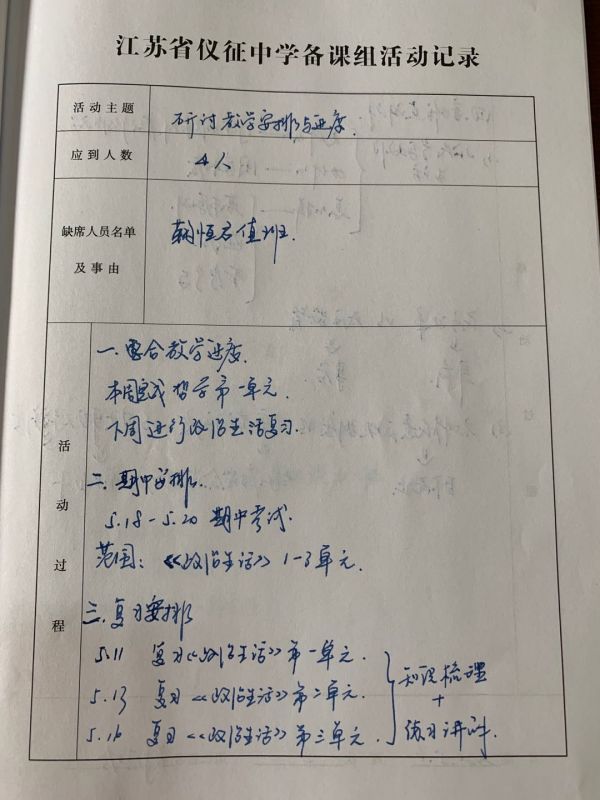 江苏省仪征中学备课组活动记录
活动主题
研讨教学安排与进度.
应到人数
4人
缺席人员名单
及事由
值班.
活动过程
一.教学进度.
本周完成哲学第一单元.
下周进行政治生活复习.
二.期中安排.
5.18-5.20 期中考试.
范围:《政治生活》1-3单元.
三.复习安排
5.11 复习《政治生活》第一单元.
5.13 复习《政治生活》第二单元.
5.16 复习《政治生活》第三单元.
知识梳理
+
练习讲评.